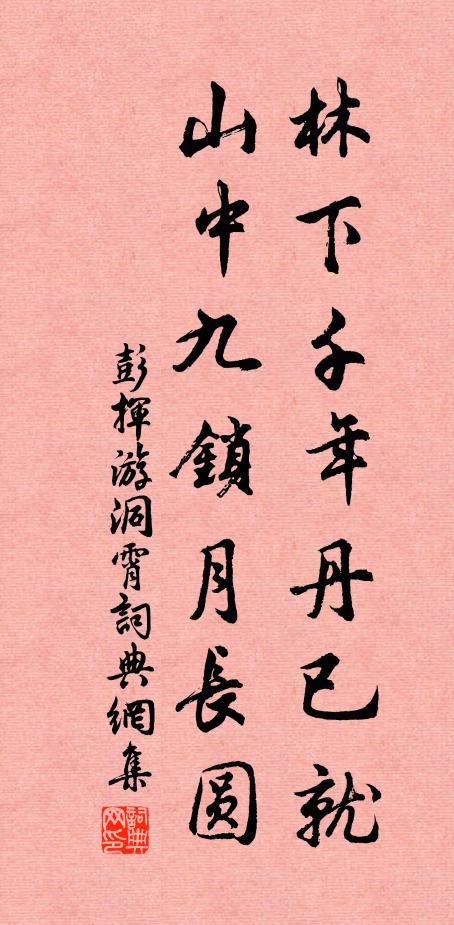 林下千年丹已就
山中九鎖月長圆
彭揮游洞霄詞典網集
詞典网印